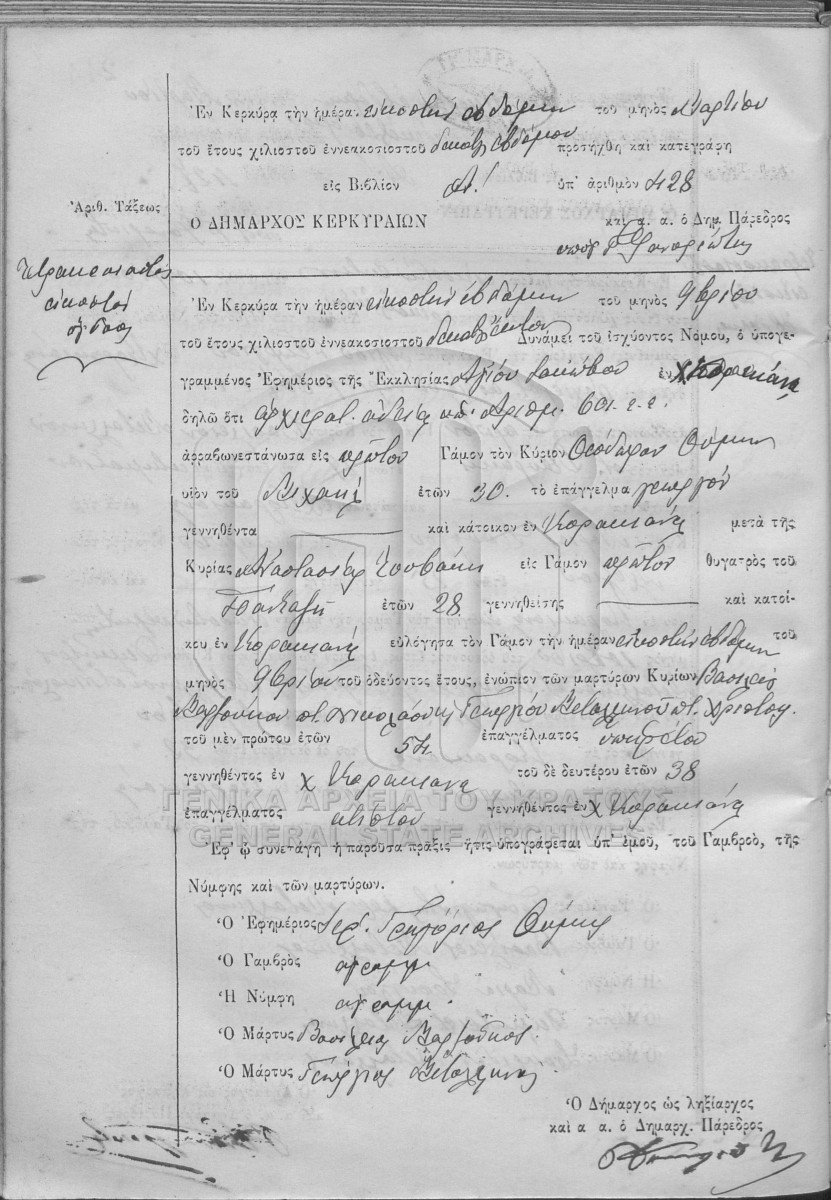 Ἐν Κερκύρᾳ τὴν ἡμέραν εἰκοστὴν ἑβδόμην τοῦ μηνὸς Μαρτίου
τοῦ ἔτους χιλιοστοῦ ἐννεακοσιοστοῦ δεκάτου ἑβδόμου προσήχθη καὶ κατεγράφη
εἰς Βιβλίον Α! ὑπ' ἀριθμὸν 428
Ἀριθ. Τάξεως
Ο ΔΗΜΑΡΧΟΣ ΚΕΡΚΥΡΑΙΩΝ
καὶ α. α. ὁ Δημ. Πάρεδρος
τετρακοσιοστὸς
εἰκοστὸς
ὄγδοος
Ἐν Κερκύρᾳ τὴν ἡμέραν εἰκοστὴν ἑβδόμην τοῦ μηνὸς 9βρίου
τοῦ ἔτους χιλιοστοῦ ἐννεακοσιοστοῦ δεκάτου ἕκτου Δυνάμει τοῦ ἰσχύοντος Νόμου, ὁ ὑπογε-
γραμμένος Ἐφημέριος τῆς Ἐκκλησίας Ἁγίου Ἰακώβου ἐν Κορακιάνᾳ
δηλῶ ὅτι ἀρχιερατ. ἀδείᾳ ὑπ' ἀριθμ. 601. ε. ε.
ἀρραβωνεστάνωσα εἰς πρῶτον Γάμον τὸν Κύριον Θεόδωρον Θύμην
υἱὸν τοῦ Μιχαὴλ ἐτῶν 30. τὸ ἐπάγγελμα γεωργὸν
γεννηθέντα καὶ κάτοικον ἐν Κορακιάνᾳ μετὰ τῆς
Κυρίας Ἀναστασίας εἰς Γάμον πρῶτον θυγατρὸς τοῦ
ἐτῶν 28 γεννηθείσης καὶ κατοί-
κου ἐν Κορακιάνᾳ εὐλόγησα τὸν Γάμον τὴν ἡμέραν εἰκοστὴν ἑβδόμην τοῦ
μηνὸς 9βρίου τοῦ ὁδεύοντος ἔτους, ἐνώπιον τῶν μαρτύρων Κυρίων Βασιλείου
πτ. Νικολάου κ Γεωργίου Μεταλληνοῦ πτ. Χρίστου.
τοῦ μὲν πρώτου ἐτῶν 54 ἐπαγγέλματος ὑπηρέτου
γεννηθέντος ἐν χ Κορακιάνᾳ τοῦ δὲ δευτέρου ἐτῶν 38
ΓΕΝΙΚΑ ΑΡΧΕΙΑ ΤΟΥ ΚΡΑΤΟΥΣ
ἐπαγγέλματος κτίστου γεννηθέντος ἐν χ Κορακιάνᾳ
GENERAL STATE ARCHIVES
Ἐφ' ᾧ συνετάγη ἡ παροῦσα πρᾶξις ἥτις ὑπογράφεται ὑπ' ἐμοῦ, τοῦ Γαμβροῦ, τῆς
Νύμφης καὶ τῶν μαρτύρων.
Ὁ Ἐφημέριος Ἱερ. Γρηγόριος Θύμης
Ὁ Γαμβρὸς ἀγραμμ.
Ἡ Νύμφη ἀγραμμ.
Ὁ Μάρτυς Βασίλειος
Ὁ Μάρτυς Γεώργιος Μεταλληνὸς
Ὁ Δήμαρχος ὡς ληξίαρχος
καὶ α α. ὁ Δημαρχ. Πάρεδρος